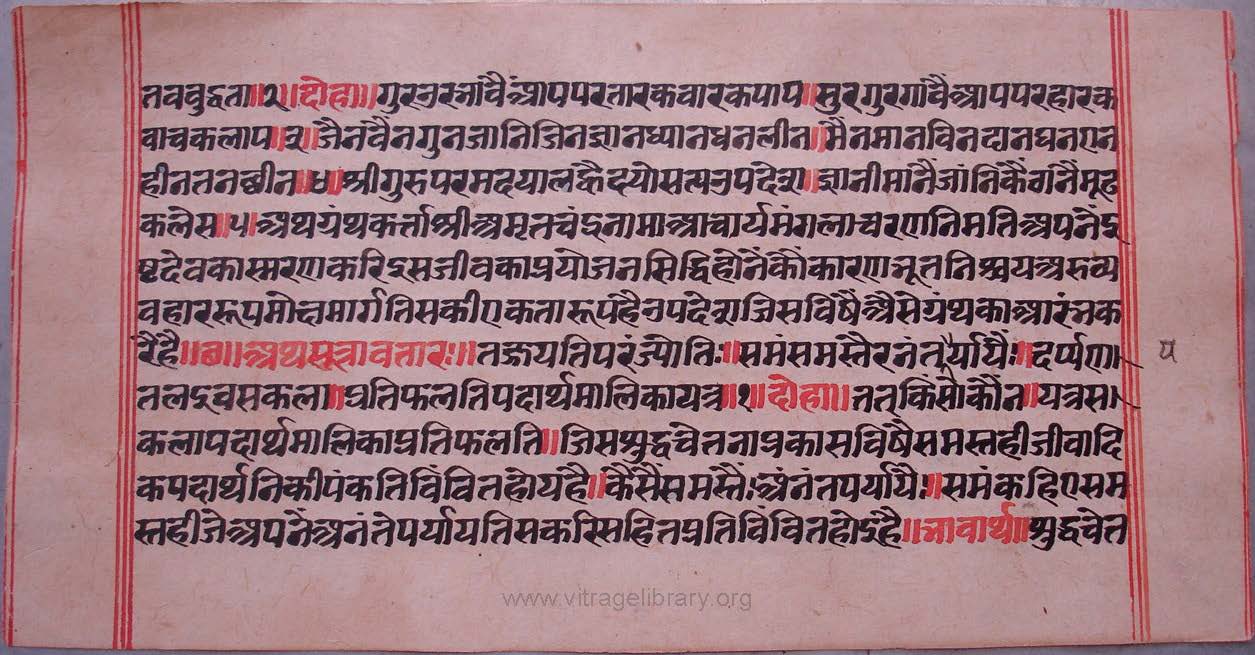 तववुद्वता॥२॥दोहा॥गुरउरभांवैंआपपरतारकवारकपाप॥सुरगुरगांवैंआपपरहारक
वाचकलाप॥३॥जैनंवैंनगुनजानिजिनज्ञानध्यानधनलीन॥मैनमानविनदानघनएन
हीनतनछीन॥४॥श्रीगुरुपरमदयालह्वैदयोसत्यउपदेश॥ज्ञानीमांनैंजांनिकैंवांनैंमूढ
कलेस॥५॥अथग्रंथकर्त्ताश्रीअमृतचंद्रनामाआचार्यमंगलाचरणनिमतिअपनेंइ
ष्टदेवकास्मरणकरिइसजीवकाप्रयोजनसिद्धिहोनेंकौंकारणभूतनिश्चयअरुव्य
वहाररूपमोक्षमार्गतिसकीएकतारूपहैउपदेशजिसविषैंअैसेग्रंथकाआरंभक
रैंहैं॥छ॥अथसूत्रावतारः॥तज्जयतिपरंज्योतिः॥समंसमस्तैरनंतपर्यायैः॥दर्प्पणा
तलइवसकला॥प्रतिफलतिपदार्थमालिकायत्र॥१॥दोहा॥तत्किंसोकौंन॥यत्रस
कलापदार्थमालिकाप्रतिफलति॥जिसशुद्धचेतनाप्रकासविषैसमस्तहीजीवादि
कपदार्थनिकीपंकतिविंवितहोयहै॥कैसैंसमस्तैंःअनंतपर्यायैः॥समंकहिएसम
स्तहीजेअपनेंअनंतेपर्यायतिसकरिसहितप्रतिविंवितहोइहै॥भावार्थ॥शुद्धचेत
www.vitragelibrary.org